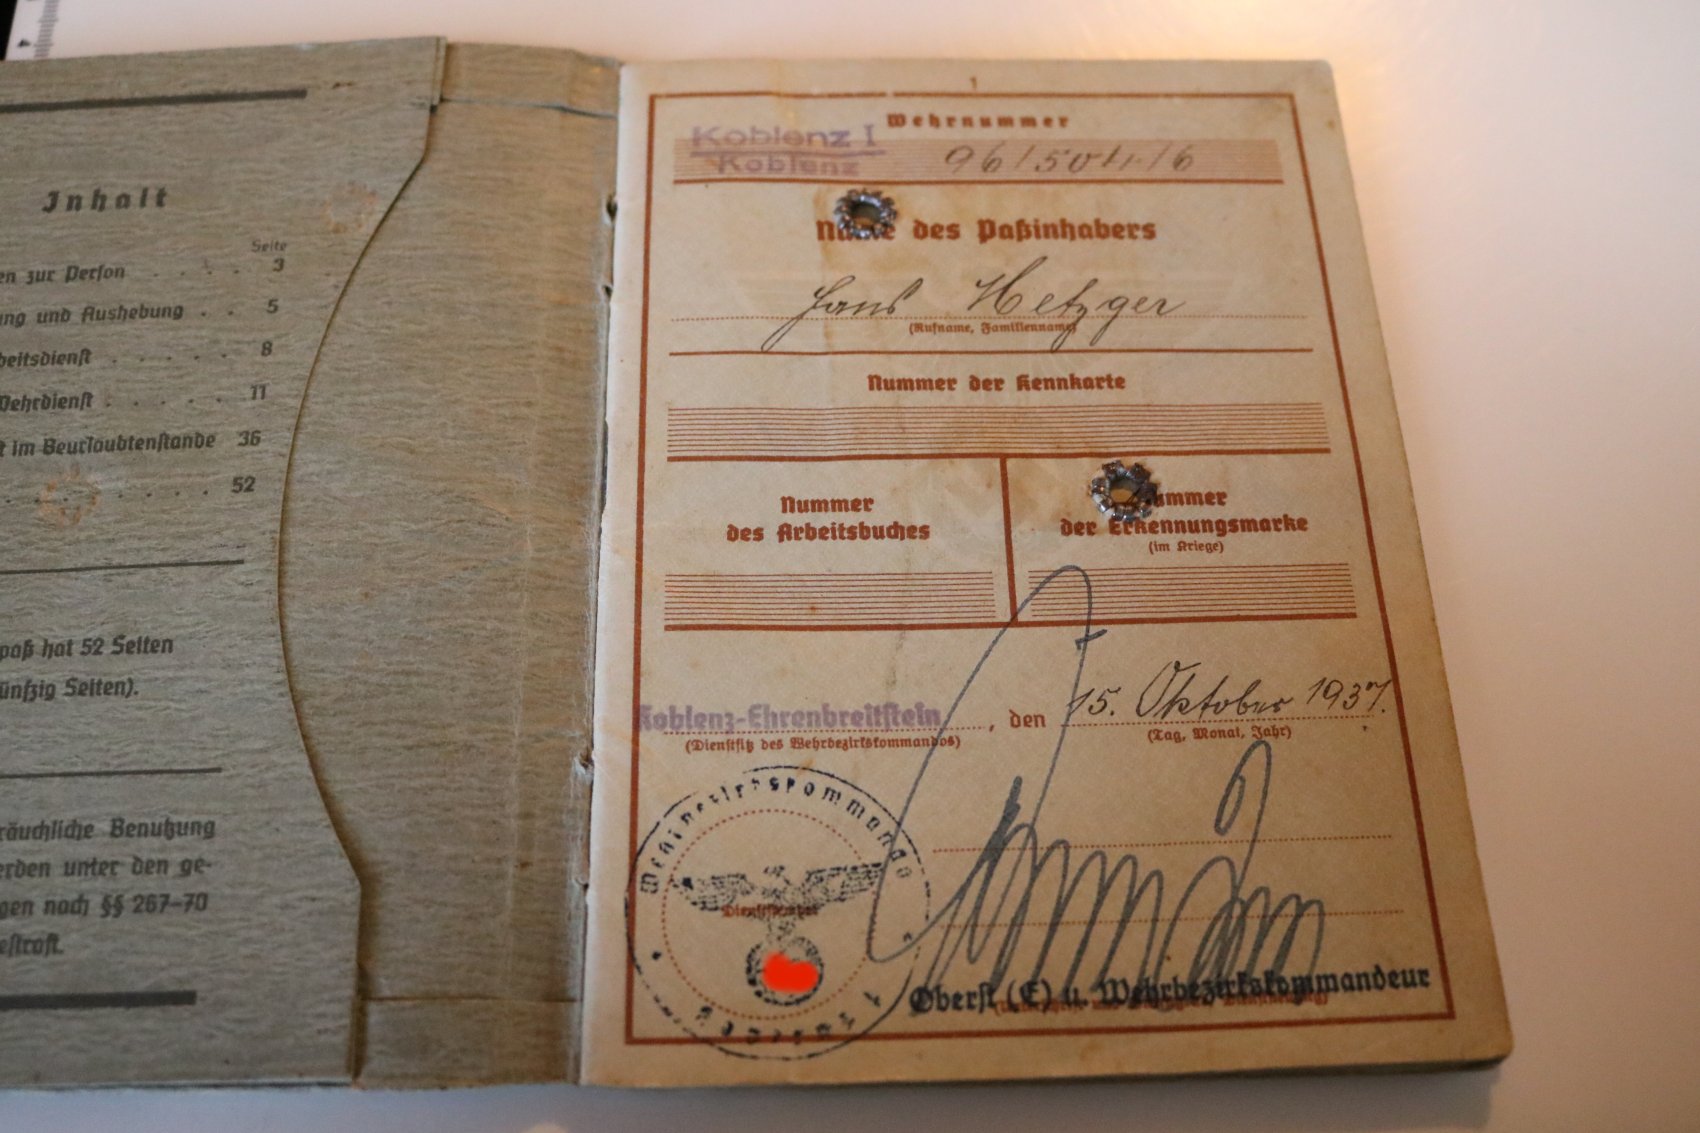 Inhalt
Seite
en zur Person . . . . 3
ung und Aushebung . . 5
beitsdienst . . . . . 8
Wehrdienst . . . . . 11
t im Beurlaubtenstande 36
. . . . . 52
paß hat 52 Seiten
ünfzig Seiten).
räuchliche Benutzung
erden unter den ge-
gen nach §§ 267–70
estraft.
1
Wehrnummer
Koblenz I
Koblenz
96/
/6
des Paßinhabers
Hans Metzger
(Rufname, Familienname)
Nummer der Kennkarte
Nummer
des Arbeitsbuches
ummer
der Erkennungsmarke
(im Kriege)
Koblenz-Ehrenbreitstein, den 15. Oktober 1937.
(Dienstsitz des Wehrbezirkskommandos)
(Tag, Monat, Jahr)
Wehrbezirkskommando
Koblenz I
Dienststempel
Oberst (E) u. Wehrbezirkskommandeur